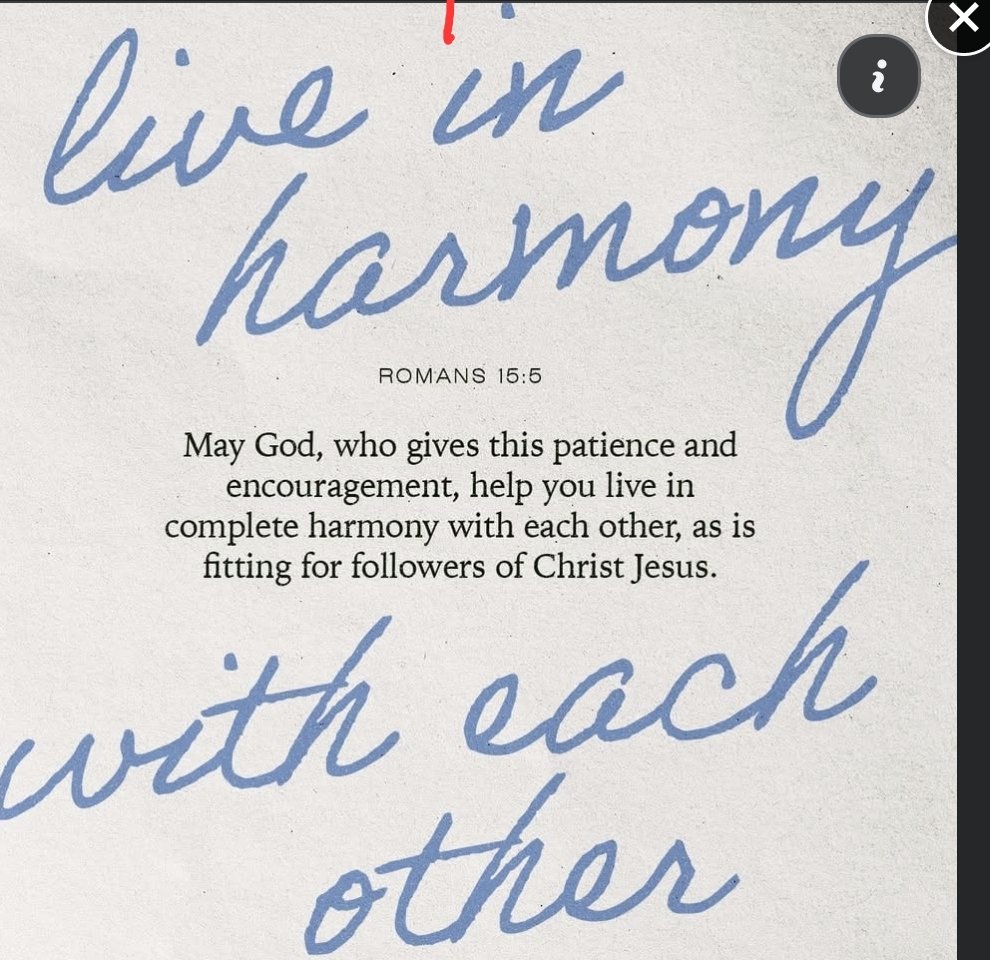 live in
harmony
ROMANS 15:5
May God, who gives this patience and
encouragement, help you live in
complete harmony with each other, as is
fitting for followers of Christ Jesus.
with each
other